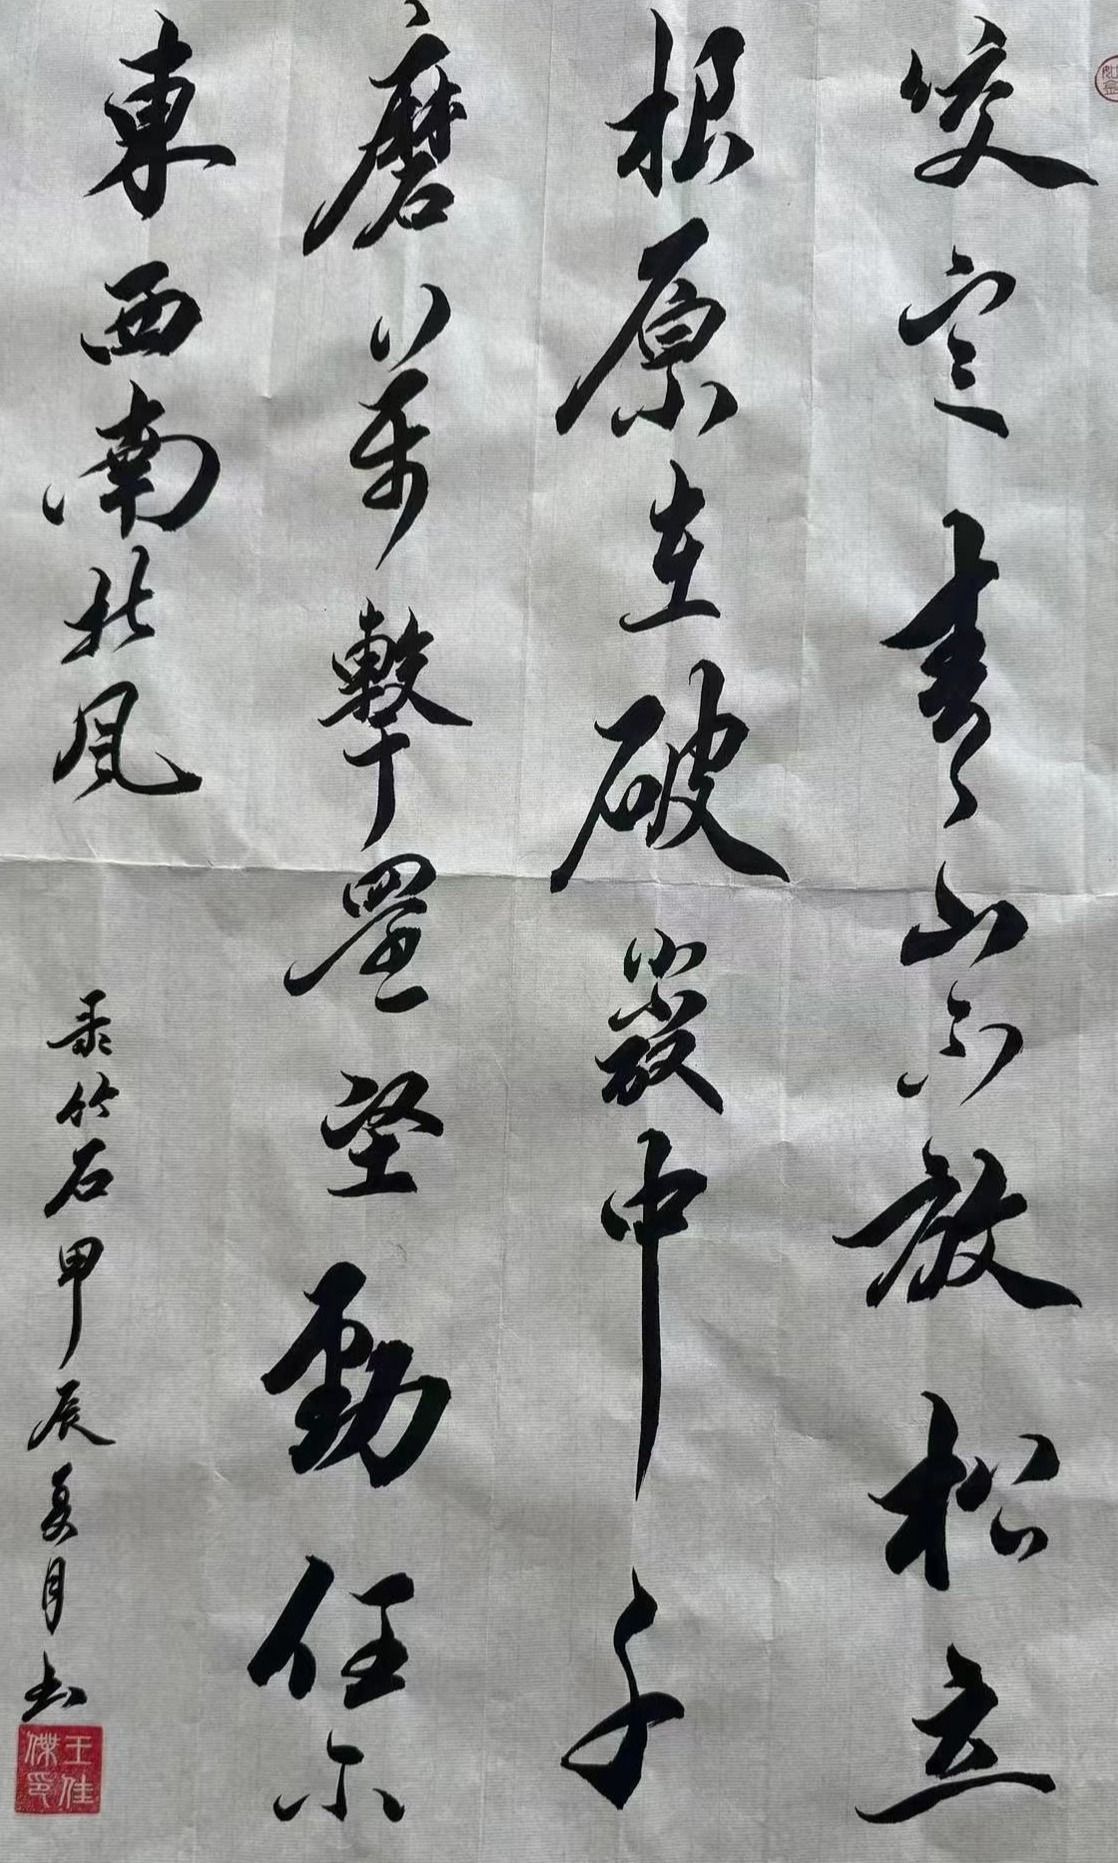 咬定青山不放松立
根原在破巖中千
磨萬擊還堅勁任尔
東西南北風
录竹石甲辰夏月书
王佳傑印